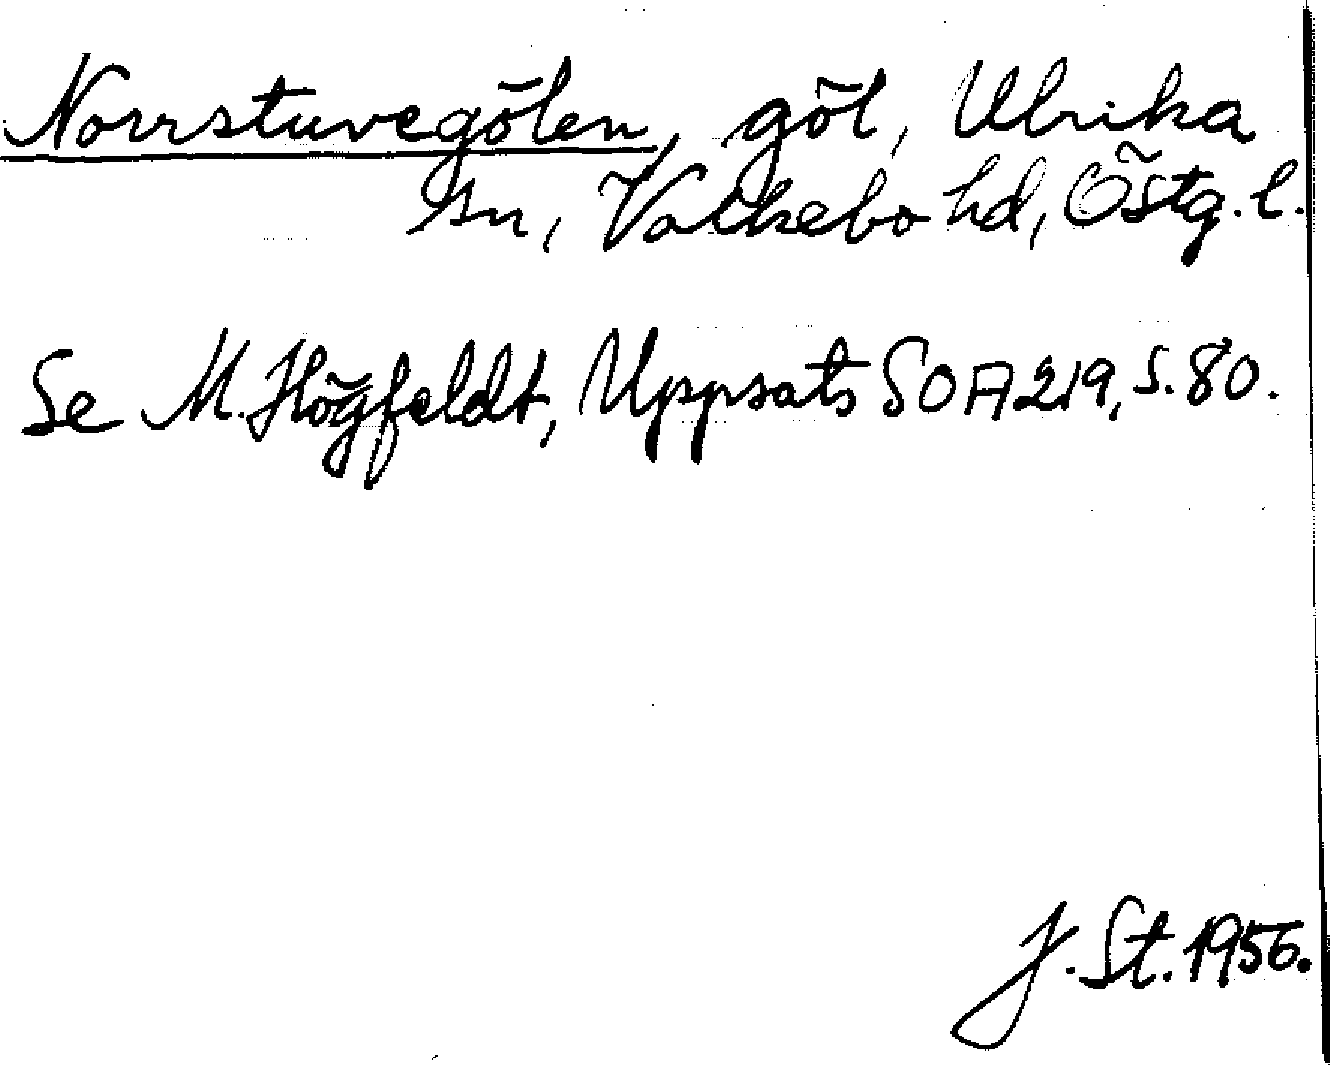 Norrstuvegölen, göl, Ulrika
sn, Valkebo hd, Östg. l.
Se M. Högfeldt, Uppsats SOA 219, s. 80.
J. St. 1956.